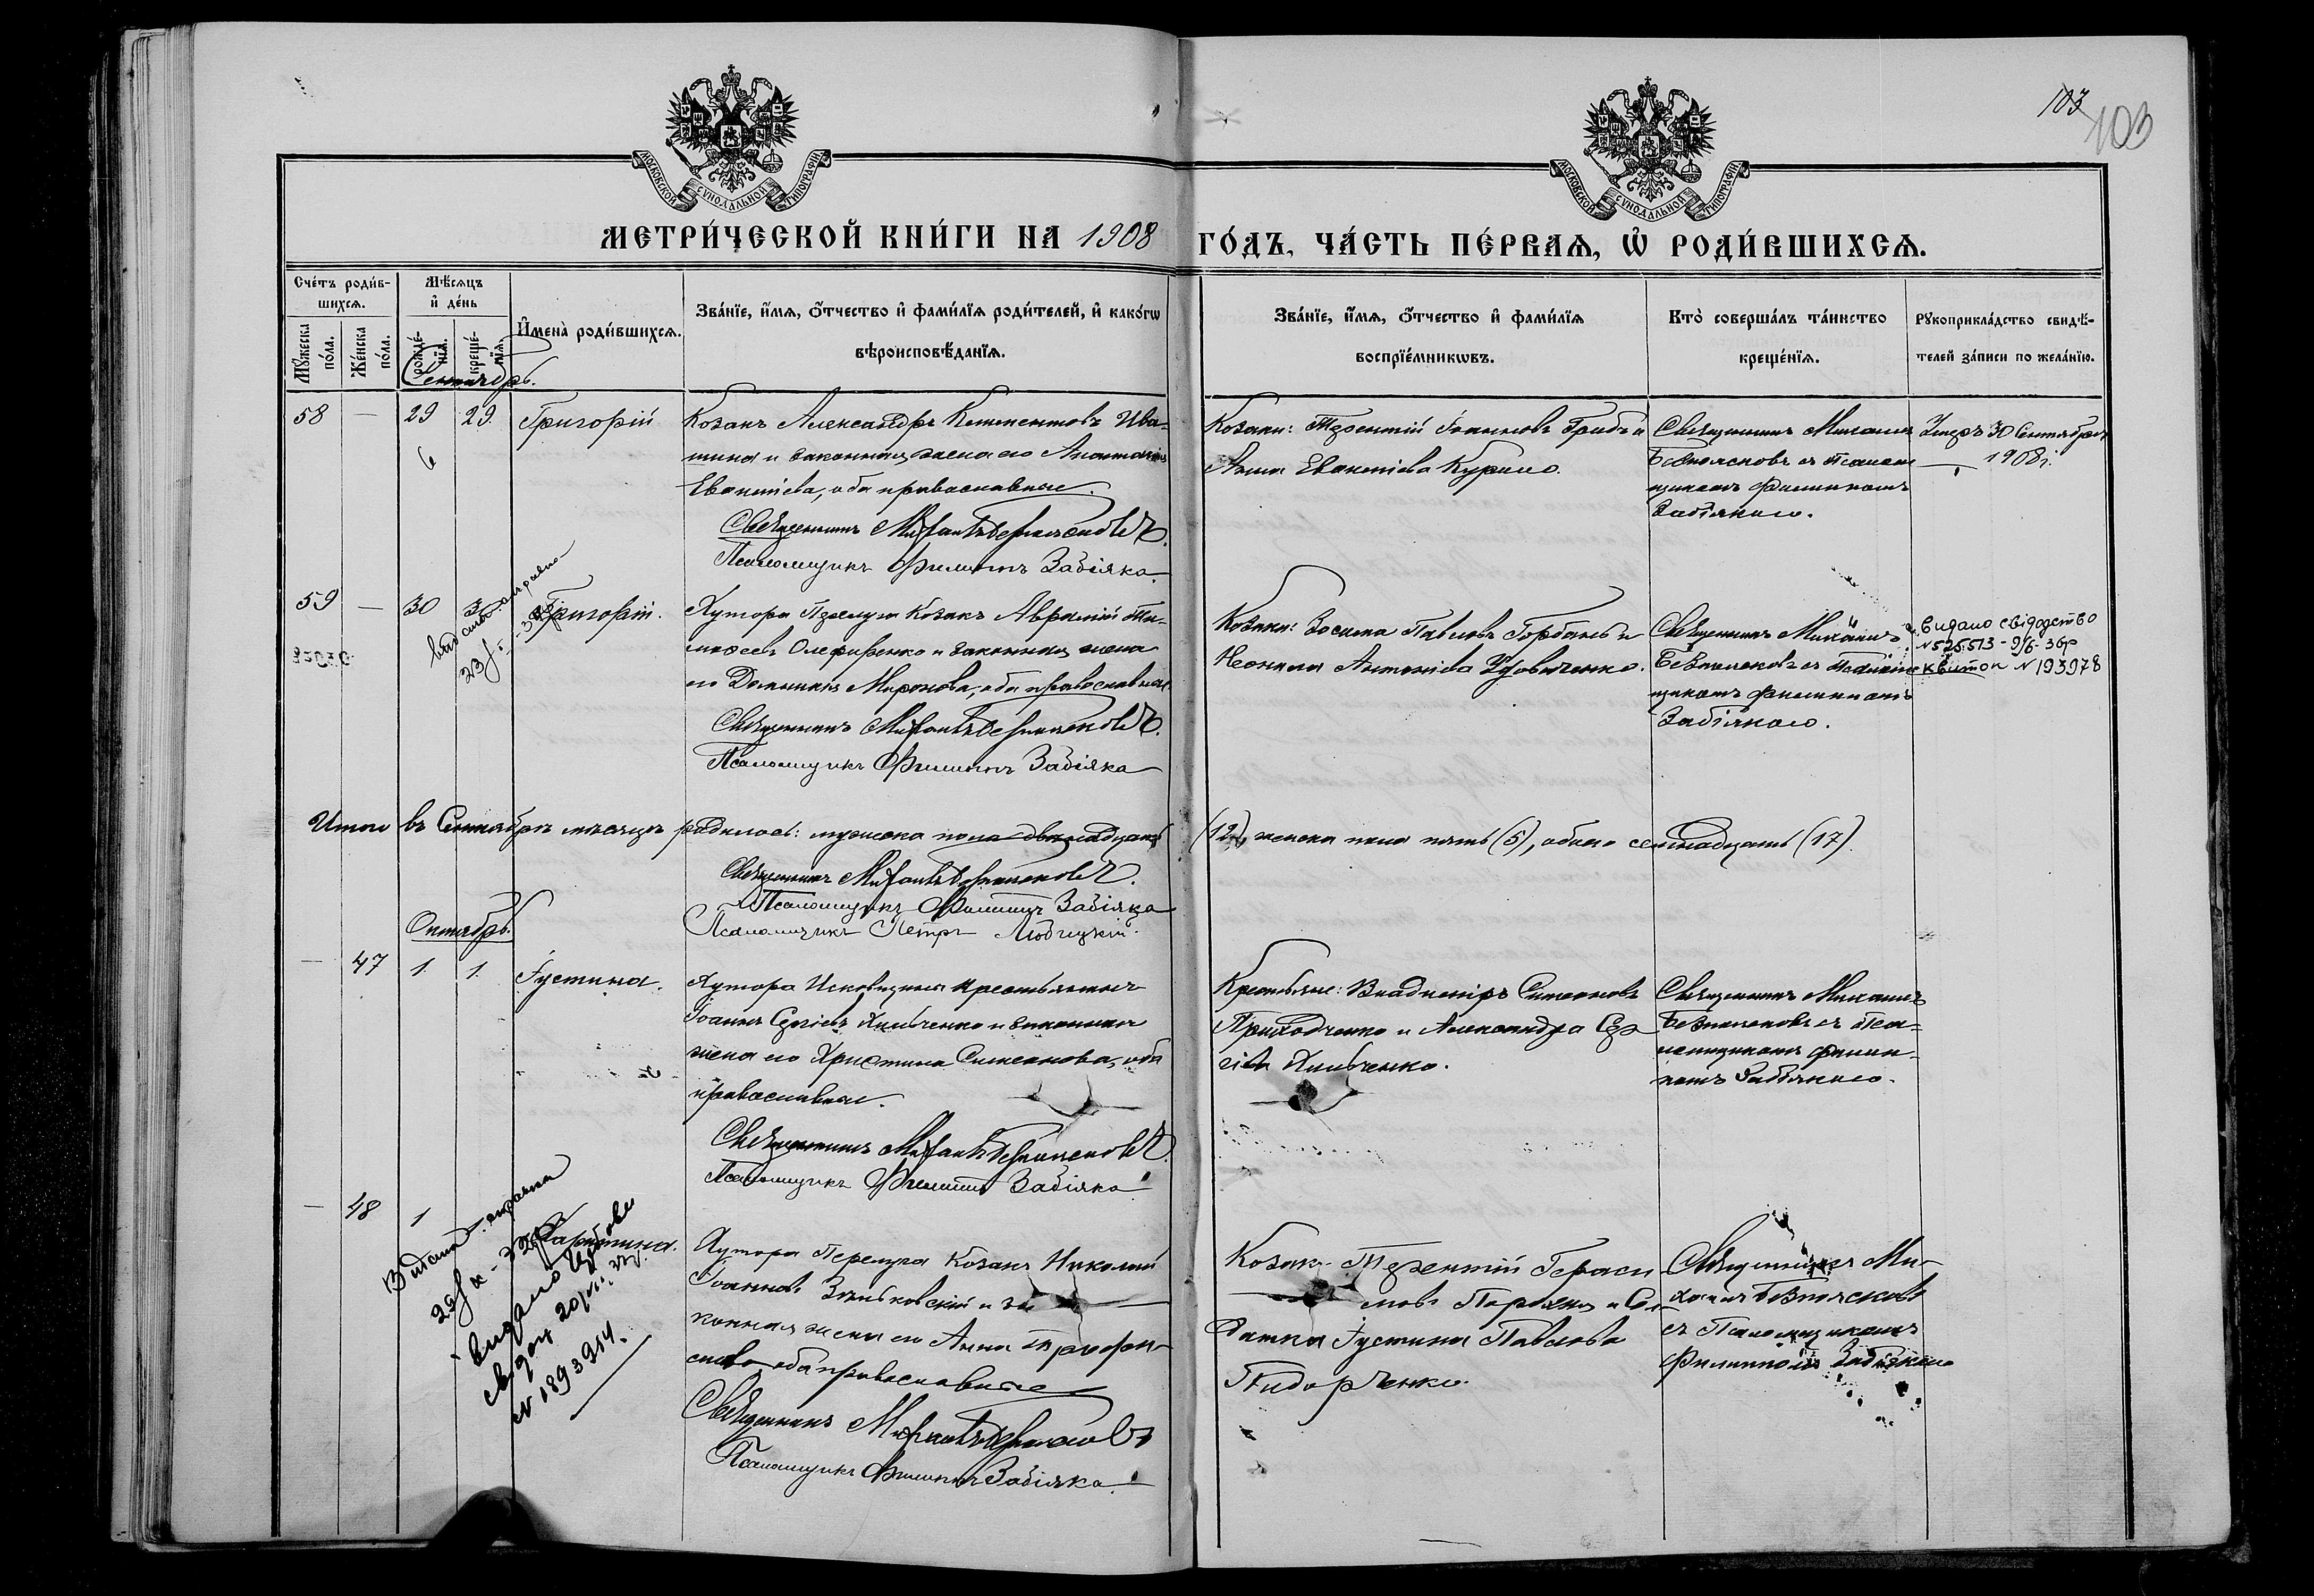 103
103
МОСКОВСКОЙ СѴНОДАЛЬНОЙ ТИПОГРАФІИ
МОСКОВСКОЙ СѴНОДАЛЬНОЙ ТИПОГРАФІИ
МЕТРИ́ЧЕСКОЙ КНИ́ГИ НА 1908 ГО́ДЪ, ЧА́СТЬ ПЕ́РВАѦ, Ѡ РОДИ́ВШИХСѦ.
Сче́тъ роди́в-
шихсѧ.
Мꙋ́жеска по́ла.
Же́нска по́ла.
Мѣ́сѧцъ
и҆ де́нь
рожде́-
нїѧ.
креще́-
нїѧ.
И҆мена̀ роди́вшихсѧ.
Зва́нїе, и҆́мѧ, ѻ҆́тчество и҆ фами́лїѧ роди́телей, и҆ како́гѡ
вѣроисповѣ́данїѧ.
Зва́нїе, и҆́мѧ, ѻ҆́тчество и҆ фами́лїѧ
воспрїе́мникѡвъ.
Кто̀ соверша́лъ та́инство
креще́нїѧ.
Рꙋкоприкла́дство свидѣ́-
телей за́писи по жела́нїю.
Сентябрь.
58 — 29 29. Григорій
Козакъ Александръ Климентовъ Ива-
шина и законная жена его Анастасія
Евфиміева, оба православные.
Священникъ Михаилъ Безпоясковъ.
Псаломщикъ Филиппъ Забіяка.
Козаки: Терентій Іоанновъ Гриdъ и
Анна Курило.
Священникъ Михаилъ
Безпоясковъ съ псалом-
щикомъ Филиппомъ
Забіякою.
Умеръ 30 Сентября
1908 г.
59 — 30 30 Григорій.
Хутора Козакъ Аврамій Ти-
моѳеевъ Олефиренко и законная жена
его Домникія Миронова, оба православные.
Священникъ Михаилъ Безпоясковъ.
Псаломщикъ Филиппъ Забіяка
Козаки: Зосима Павловъ Горбань и
Неонила Антоніева Удовиченко.
Священникъ Михаилъ
Безпоясковъ съ псалом-
щикомъ Филиппомъ
Забіякою.
видано свідоцтво
N 525513 - 9/6 - 36р
квиток N 193978
Итого въ Сентябрѣ мѣсяцѣ родилось: мужеска пола двѣнадцать (12), женска пола пять (5), обоего семнадцать (17).
Священникъ Михаилъ Безпоясковъ.
Псаломщикъ Филиппъ Забіяка
Псаломщикъ Петръ Любицкій.
Октябрь.
— 47 1. 1. Іустина.
Хутора крестьянинъ
Іоаннъ Сергіевъ Хильченко и законная
жена его Христина Симеонова, оба
православные.
Священникъ Михаилъ Безпоясковъ
Псаломщикъ Филиппъ Забіяка
Крестьяне: Владиміръ Симеоновъ
Приходченко и Александра Сер-
гіева Хильченко.
Священникъ Михаилъ
Безпоясковъ съ пса-
ломщикомъ Филип-
помъ Забіякою.
— 48 1 Харитина.
видано
свідоц.
N 1893914.
Хутора Перелуга Козакъ Николай
Іоанновъ Зѣньковскій и за-
конная жена его Анна Трофи-
мова, оба православные
Священникъ Михаилъ Безпоясковъ
Псаломщикъ Филиппъ Забіяка.
Козакъ Терентій Гераси-
мовъ и Сол-
датка Іустина Павлова
Сидорченко.
Священникъ Ми-
хаилъ Безпоясковъ
съ Псаломщикомъ
Филиппомъ Забіякою